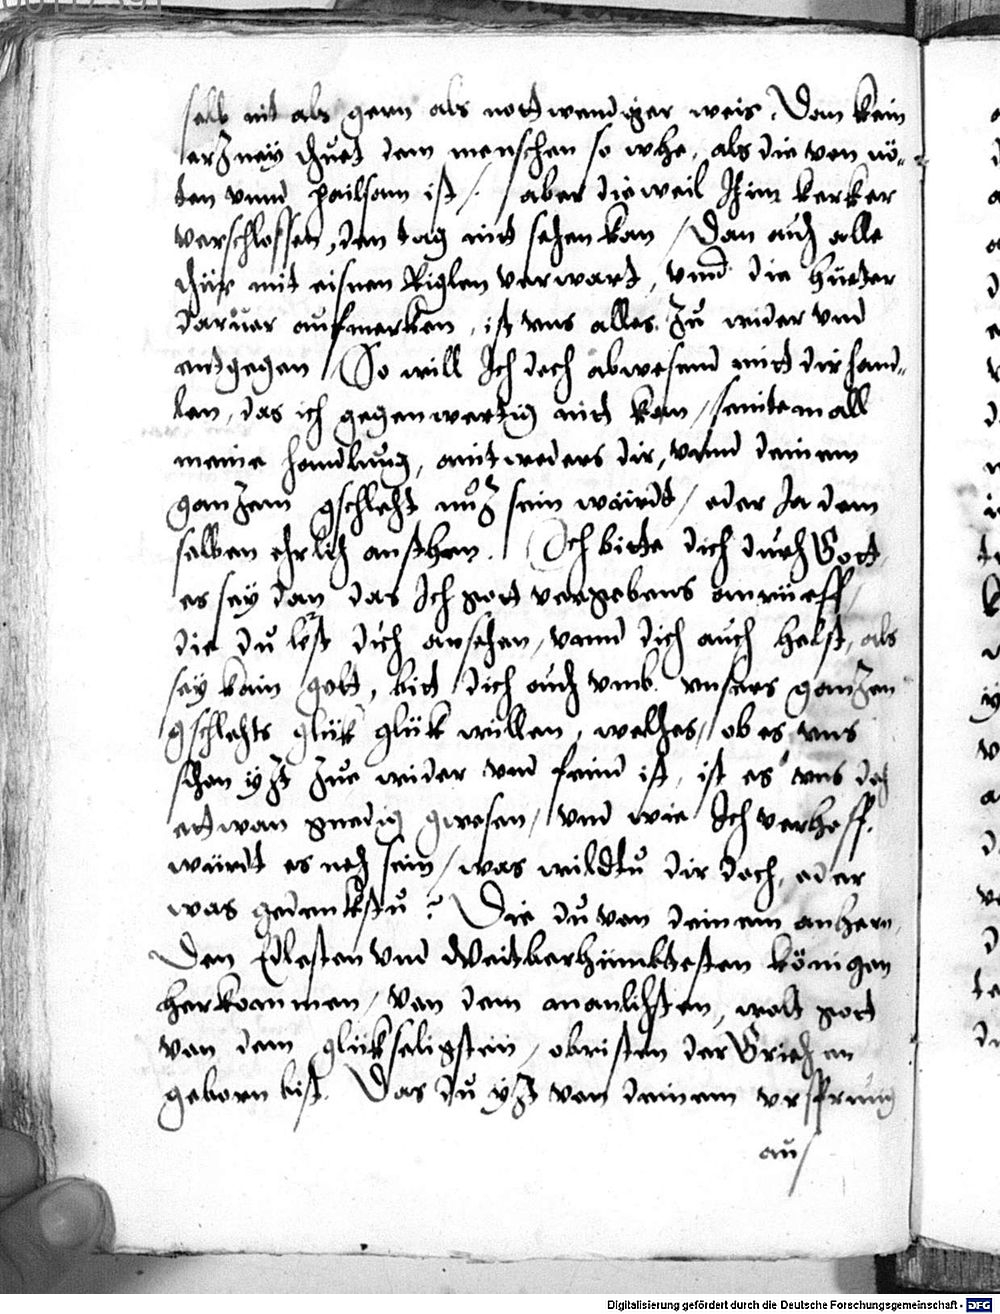 selb nit als gern als nottwendiger weis. Dan kein
erzney thuet dem menschen so whe, als die von nö-
ten vnnd hailsam ist /. aber dieweil Ich im kerker
verschlossen, den tag nitt sehen kan / Dan auch alle
thür mit eisnen Riglen verwart, vnnd die hüeter
daruor aufmerken, ist vns alles zu wider vnd
entgegen / So will Ich doch abwesend mitt dir hand-
len, das ich gegenwertig nitt kan / seintemall
meine handlung, aintweders dir, vnnd deinem
ganzem gschlecht nuz sein würdt / oder Ja dem
selben ehrlich ansthen. Ich bitte dich durch Gott
es sey dan das Ich gott vergebens anrüeff /
die du lest dich ansehen, vnnd dich auch helst, als
sey kain gott, bitt dich auch vmb vnsers ganzen
gschlechts glük glük willen, welches, ob es vns
schon yzt zue wider vnd feind ist, ist es vns doch
ettwan gnedig gwesen / vnd wie Ich verhoff,
würdt es noch sein / was wildtu dir doch, oder
was gedenkstu? Die du von deinem anhern,
Den Edlesten vnd Weitberhümbtesten königen
herkommen / Von dem manlichsten, wolt gott
von dem glükseligsten, obristen der Griechen
geborn bist. Das du yzt von deinem vrsprung
aus